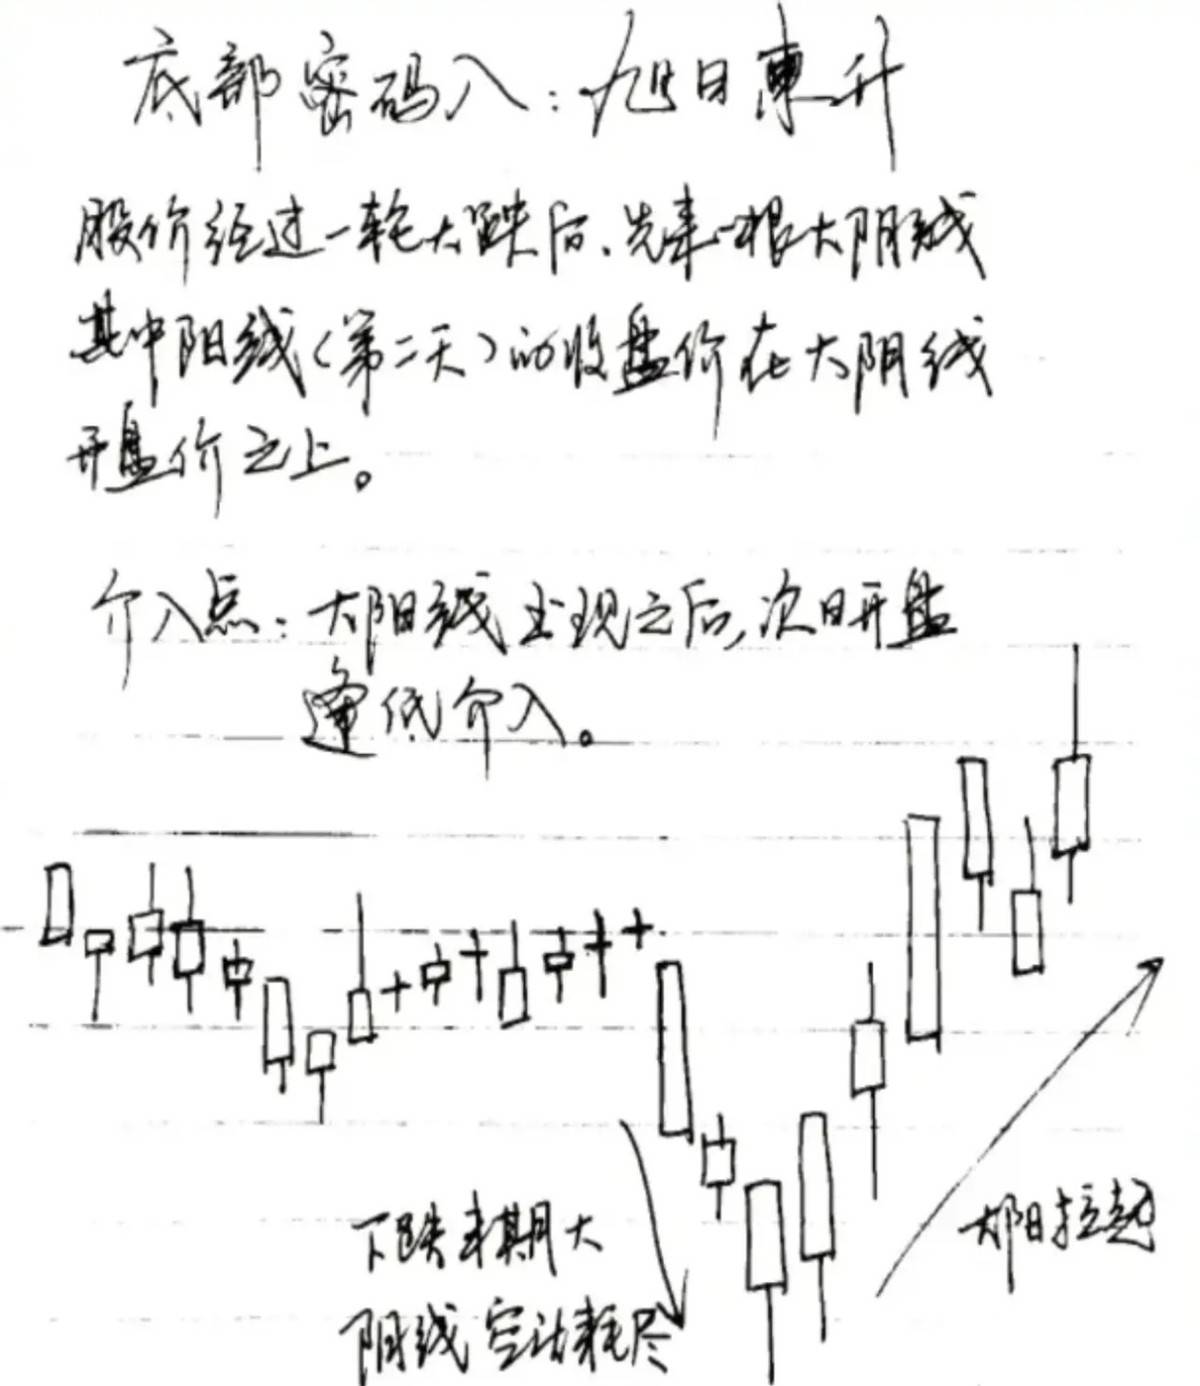 底部密码八：旭日東升
股价经过一轮大跌后、先来一根大阴线
其中阳线（第二天）的收盘价在大阴线
开盘价之上。
介入点：大阳线出现之后，次日开盘
逢低介入。
下跌末期大
阴线空动耗尽
大阳拉起